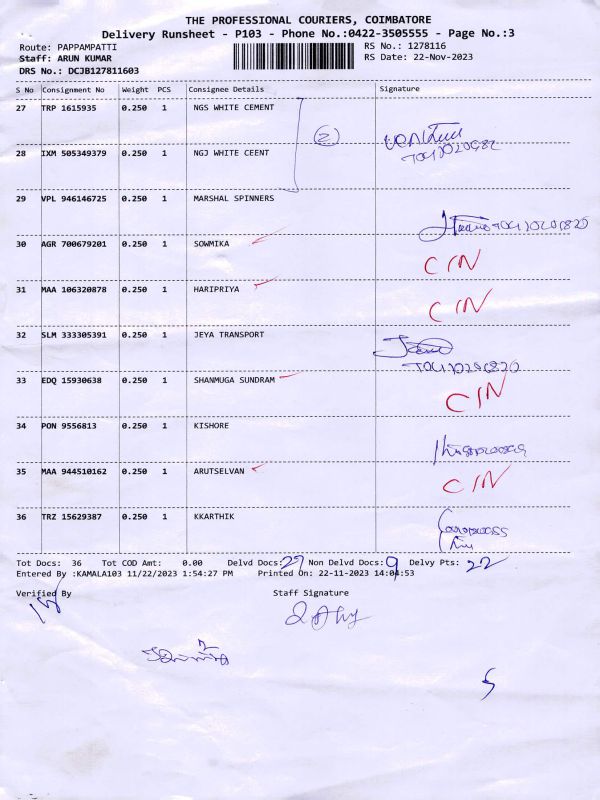 THE PROFESSIONAL COURIERS, COIMBATORE
Delivery Runsheet - P103 - Phone No.:0422-3505555 - Page No.:3
Route: PAPPAMPATTI RS No.: 1278116
Staff: ARUN KUMAR RS Date: 22-Nov-2023
DRS No.: DCJB127811603
S No Consignment No Weight PCS Consignee Details Signature
27 TRP 1615935 0.250 1 NGS WHITE CEMENT
(2)
28 IXM 505349379 0.250 1 NGJ WHITE CEENT
29 VPL 946146725 0.250 1 MARSHAL SPINNERS
30 AGR 700679201 0.250 1 SOWMIKA CIN
31 MAA 106320878 0.250 1 HARIPRIYA CIN
32 SLM 333305391 0.250 1 JEYA TRANSPORT
33 EDQ 15930638 0.250 1 SHANMUGA SUNDRAM CIN
34 PON 9556813 0.250 1 KISHORE
35 MAA 944510162 0.250 1 ARUTSELVAN CIN
36 TRZ 15629387 0.250 1 KKARTHIK
Tot Docs: 36 Tot COD Amt: 0.00 Delvd Docs: 27 Non Delvd Docs: 9 Delvy Pts: 22
Entered By :KAMALA103 11/22/2023 1:54:27 PM Printed On: 22-11-2023 14:04:53
Verified By Staff Signature